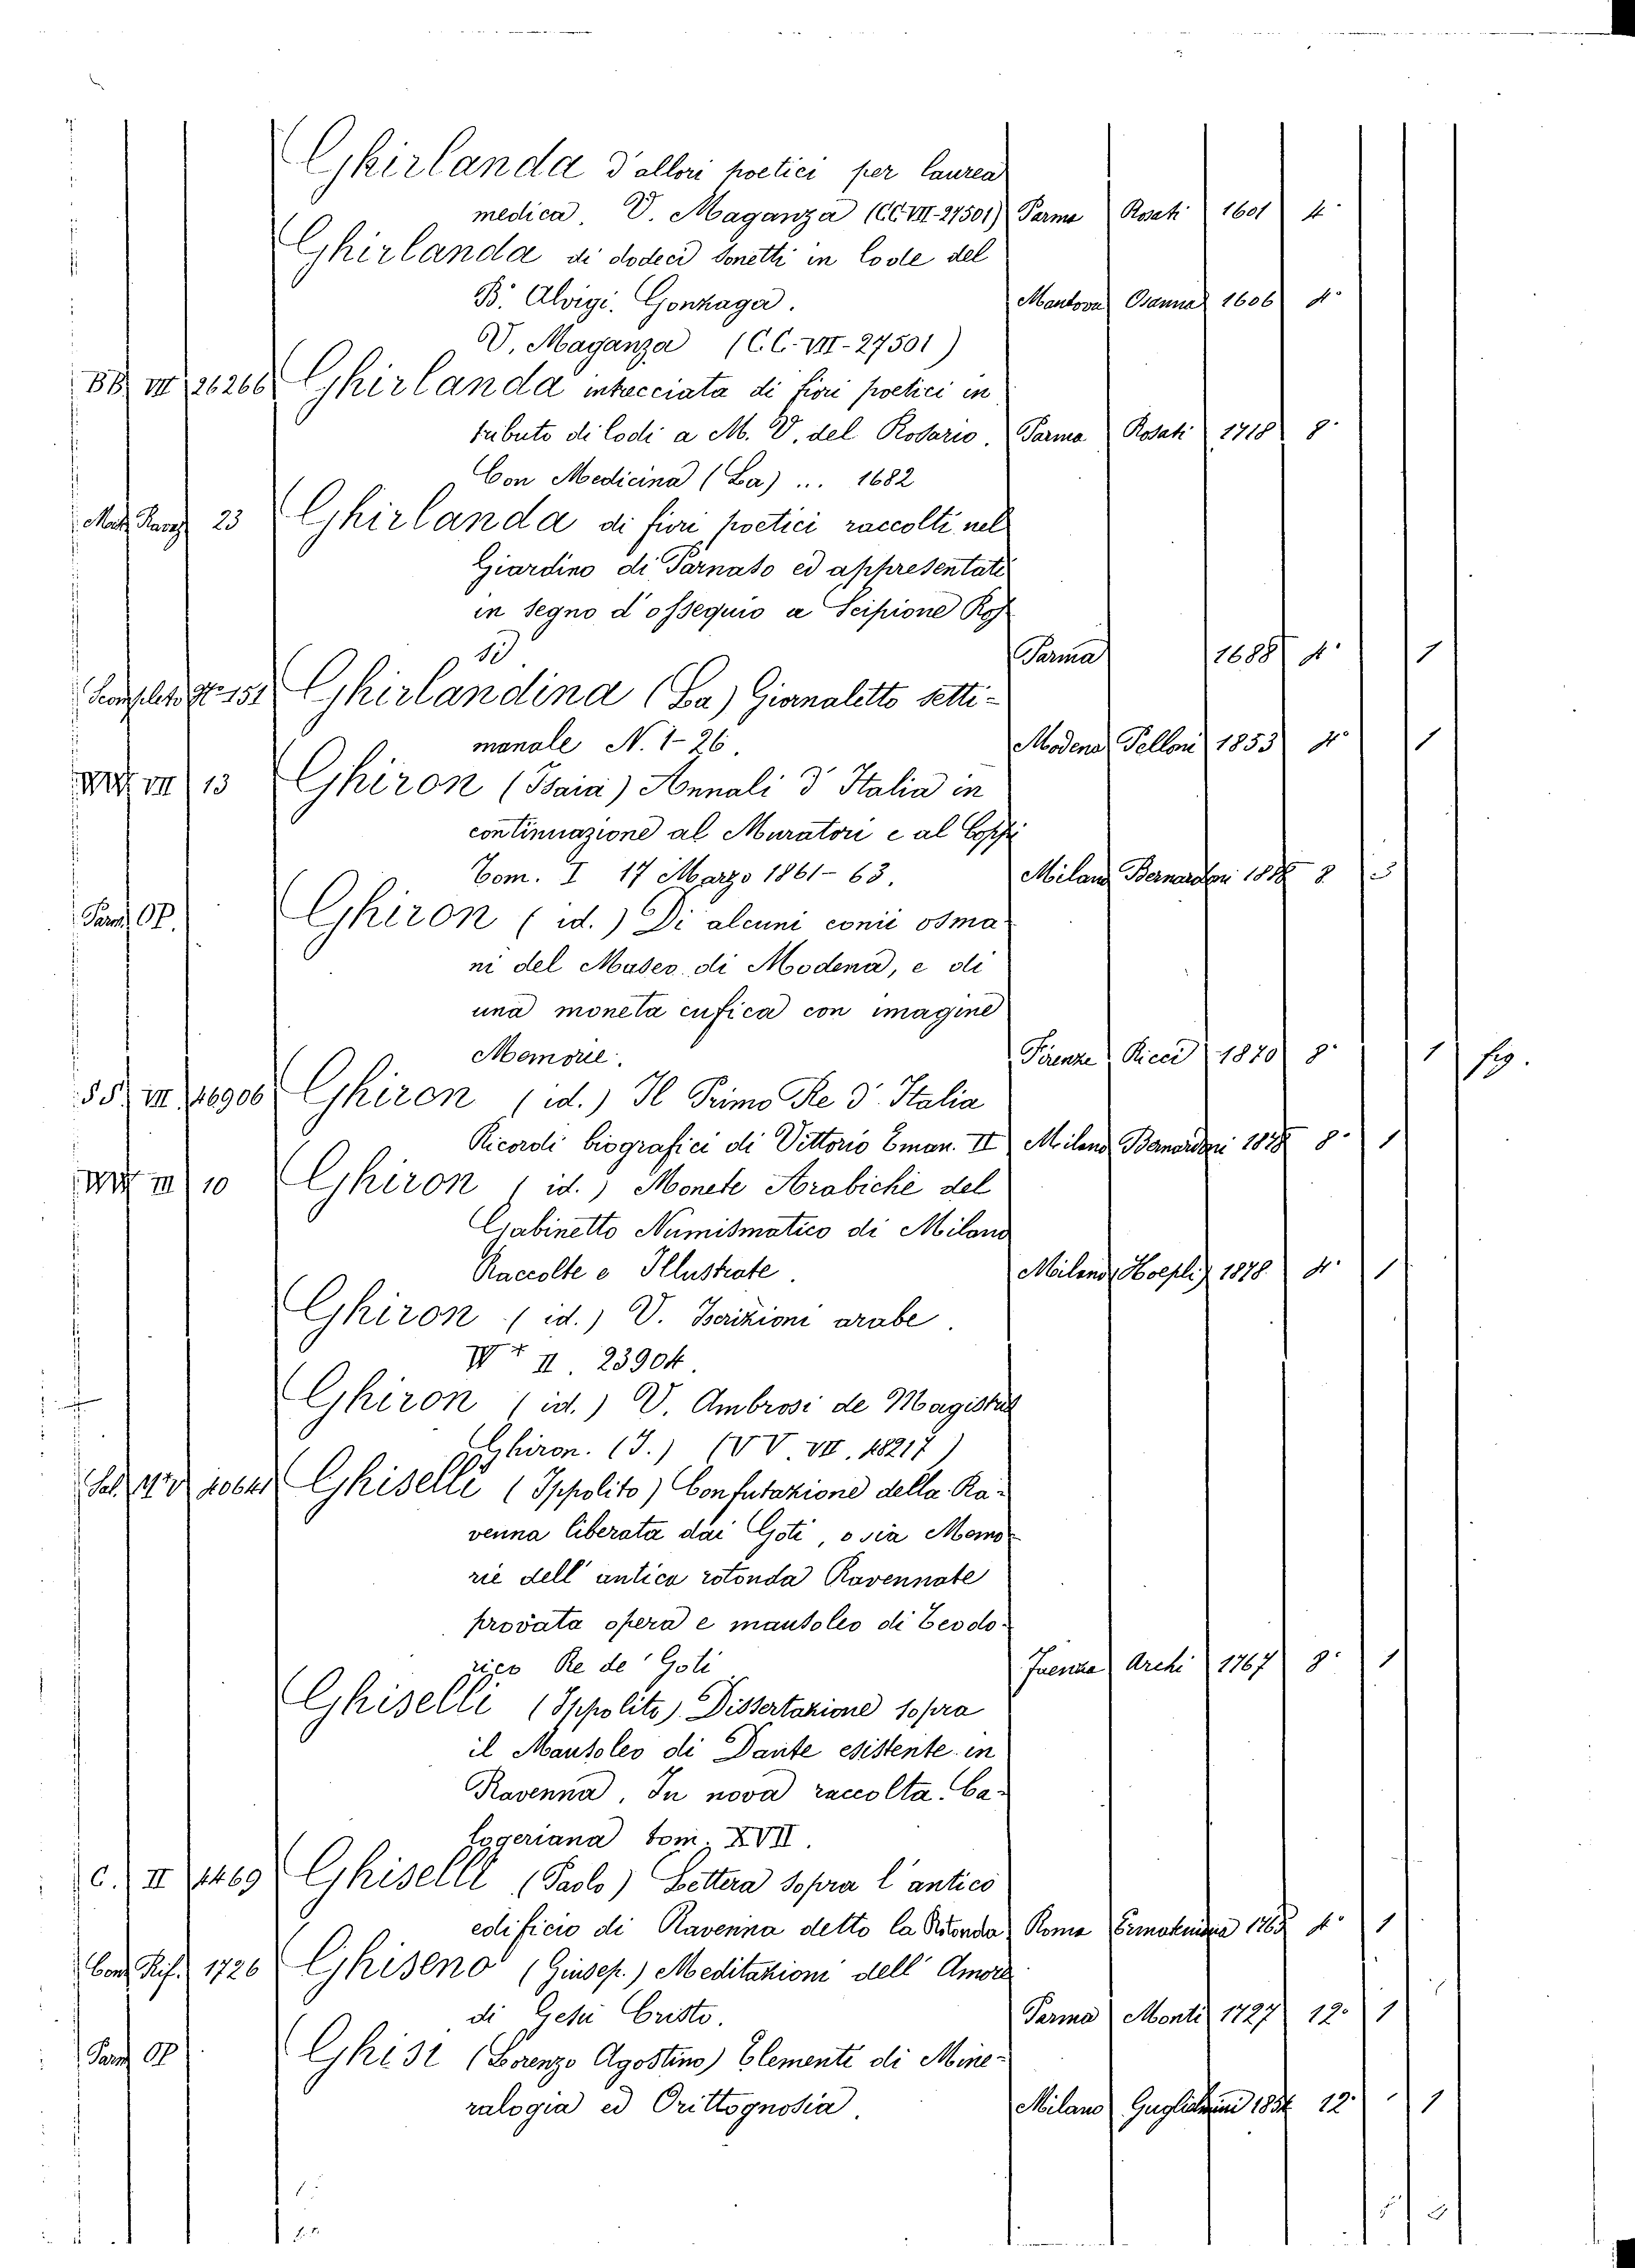 Ghirlanda d'allori poetici per laurea
medica V. Maganza (CC VII-27501) Parma Rosati 1601 4°
Ghirlanda di dodeci sonetti in lode del
B. Alvigi. Gonzaga. Mantova Osanna 1606 4°
V. Maganza (C.C. VII-27501)
BB VII 26266 Ghirlanda intrecciata di fiori poetici in
tributo di lodi a M. V. del Rosario. Parma Rosati 1718 8°
Con Medicina (La) ... 1682
23 Ghirlanda di fiori poetici raccolti nel
Giardino di Parnaso ed appresentati
in segno d'ossequio a Scipione Ros
si Parma 1688 4° 1
151 Ghirlandina (La) Giornaletto setti-
manale N. 1-26. Modena Pelloni 1853 4° 1
VII 13 Ghiron (Isaia) Annali d'Italia in
continuazione al Muratori e al Coppi
Tom. I 17 Marzo 1861-63. Milano Bernardoni 8 3
Parm. OP. Ghiron (id.) Di alcuni conii osma
ni del Museo di Modena, e di
una moneta cufica con imagine
Memorie. Firenze Ricci 1870 8° 1 fig.
SS. VII 16906 Ghiron (id.) Il Primo Re d'Italia
Ricordi biografici di Vittorio Eman. II Milano Bernardoni 1878 8° 1
III 10 Ghiron (id.) Monete Arabiche del
Gabinetto Numismatico di Milano
Raccolte e Illustrate. Milano Hoepli 1878 4° 1
Ghiron (id.) V. Iscrizioni arabe.
II. 23904.
Ghiron (id.) V. Ambrosi de Magistris
Ghiron. (I.) (VV. VII. 18217)
Ghiselli (Ippolito) Confutazione della Ra-
venna liberata dai Goti, o sia Memo
rie dell'antica rotonda Ravennate
provata opera e mausoleo di Teodo-
rico Re de' Goti Faenza Archi 1767 8° 1
Ghiselli (Ippolito) Dissertazione sopra
il Mausoleo di Dante esistente in
Ravenna. In nova raccolta Ca-
logeriana tom. XVII.
C. II 1469 Ghiselli (Paolo) Lettera sopra l'antico
edificio di Ravenna detto la Rotonda Roma 4° 1
Con. Rif. 1726 Ghiseno (Giusep.) Meditazioni dell'Amore
di Gesù Cristo. Parma Monti 1727 12° 1
Parm. OP Ghisi (Lorenzo Agostino) Elementi di Mine-
ralogia ed Orittognosia. Milano Guglielmini 12° 1